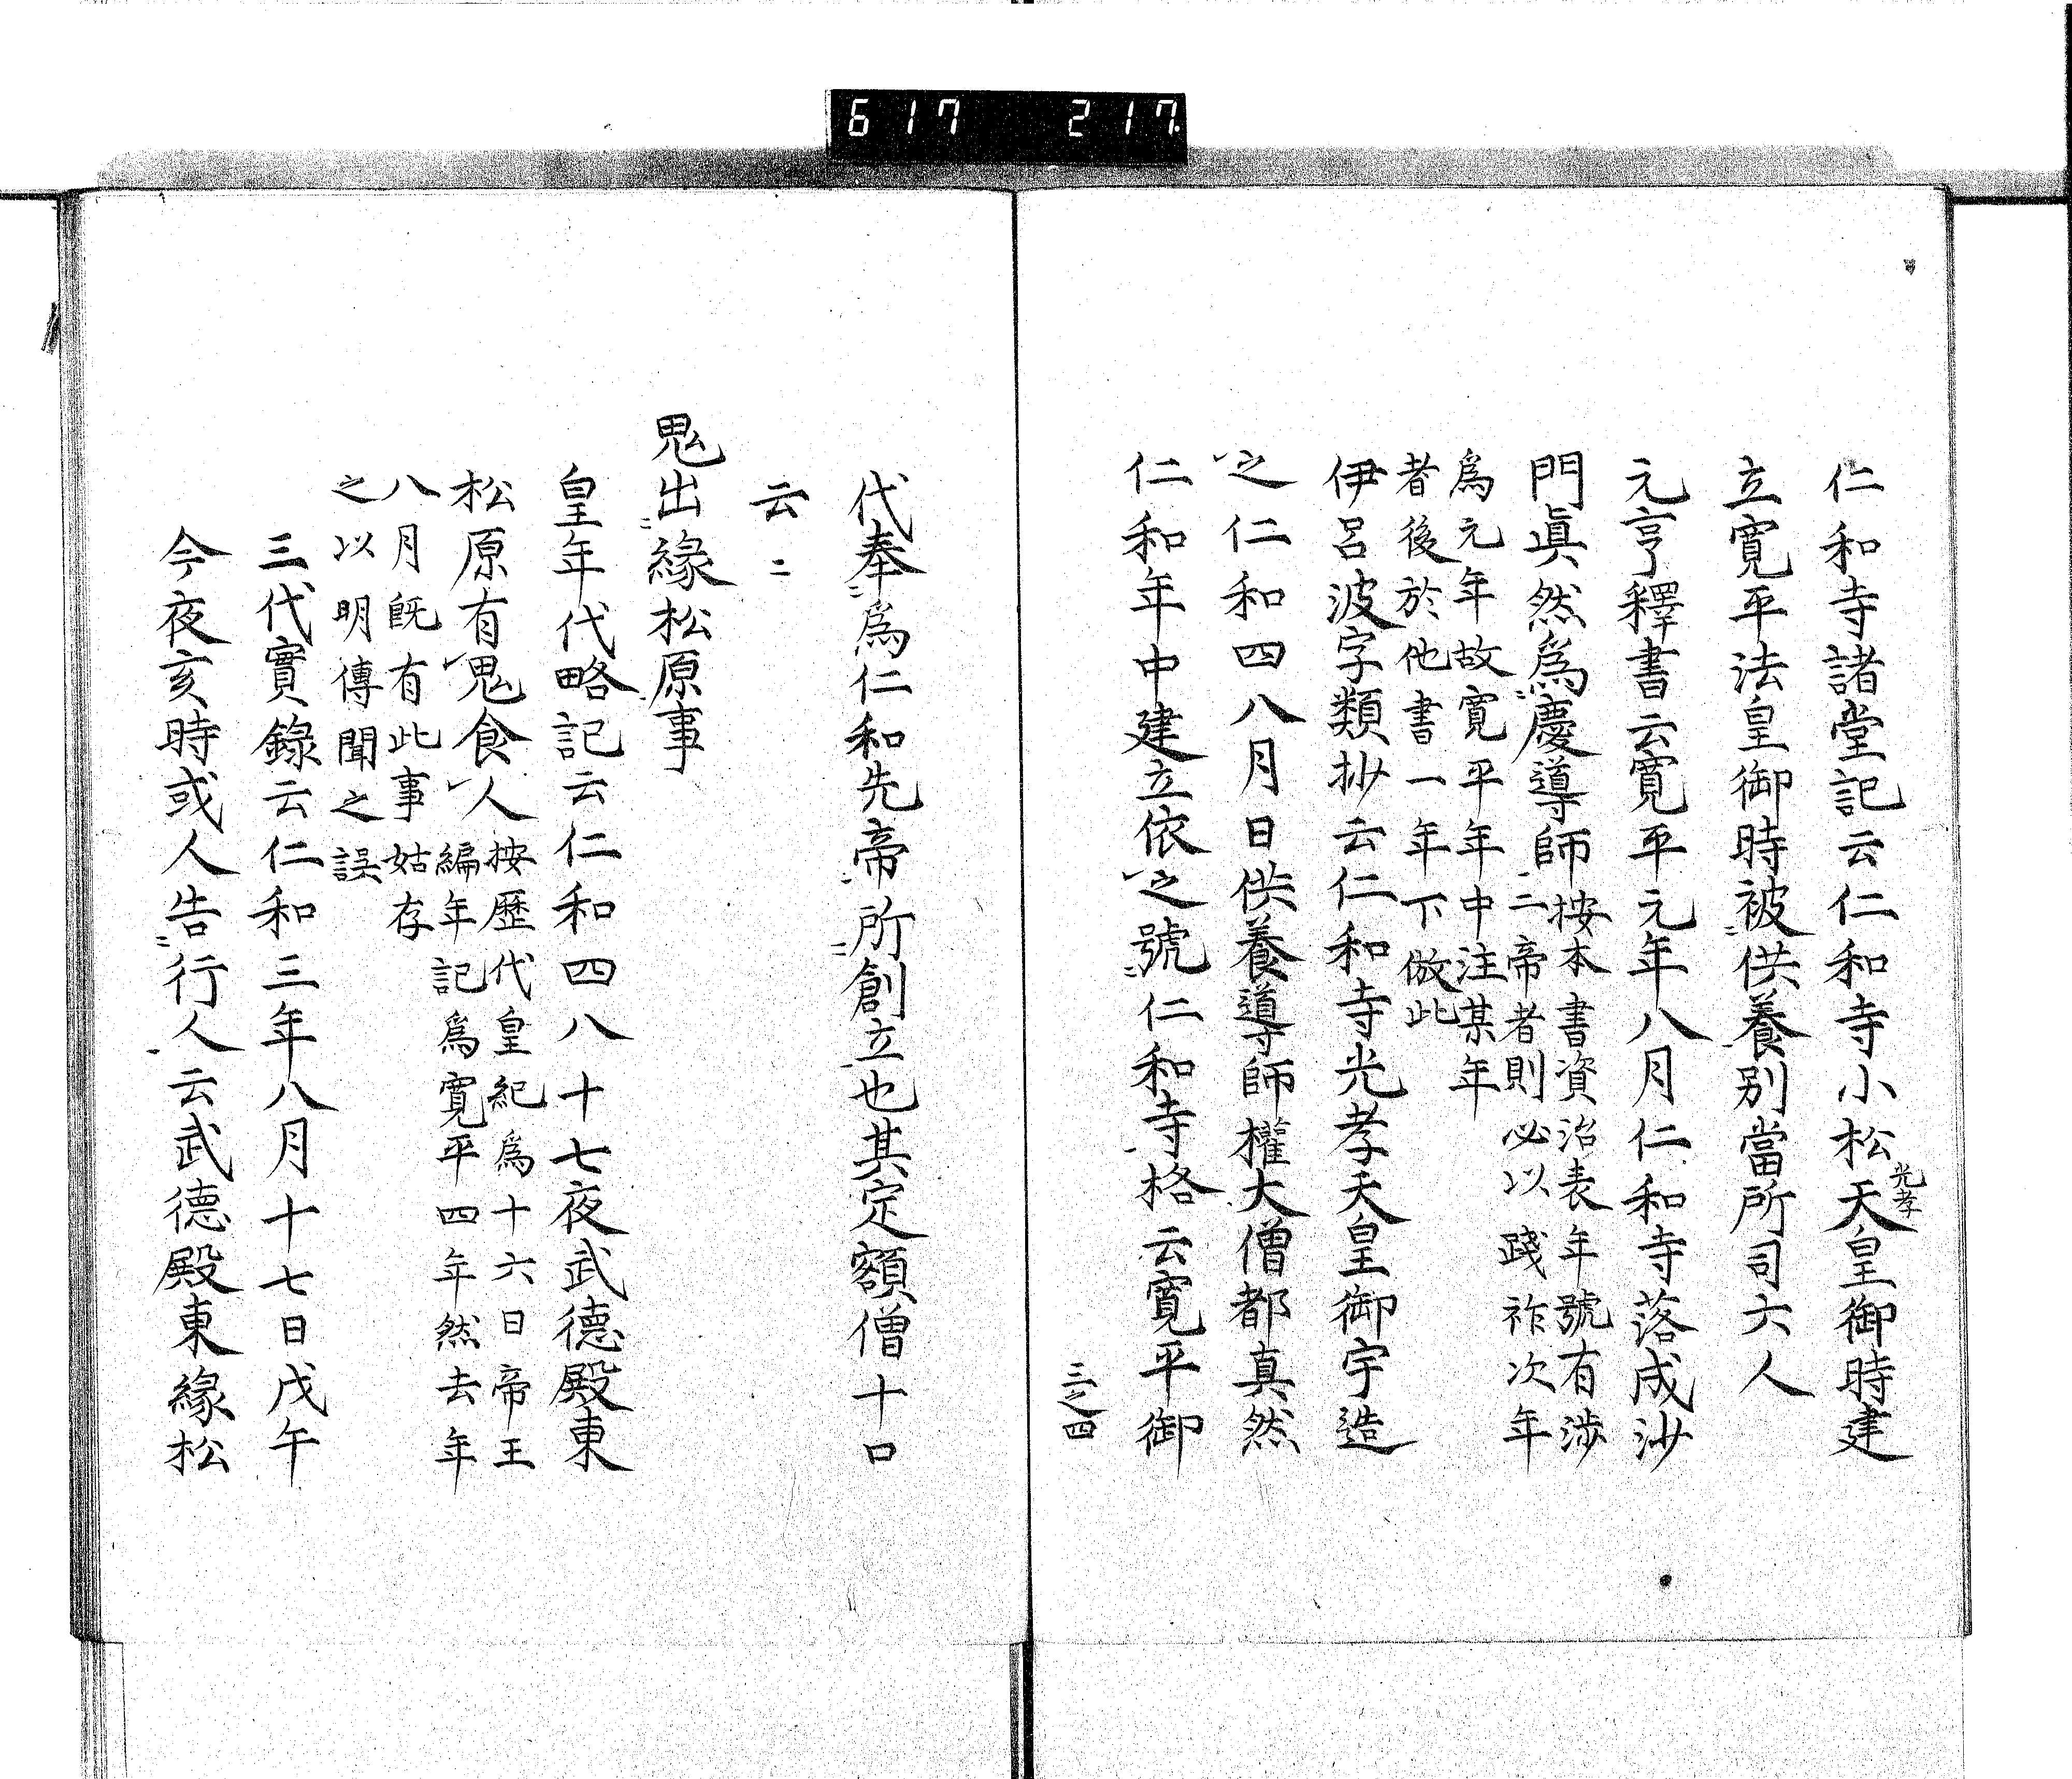 617 217.
仁和寺諸堂記云仁和寺小松天皇御時建
光孝
立寛平法皇御時被供養別當所司六人
元亨釋書云寛平元年八月仁和寺落成沙
門眞然爲慶導師
按本書資治表年號有渉
二帝者則必以踐祚次年
爲元年故寛平年中注某年
者後於他書一年下倣此
伊呂波字類抄云仁和寺光孝天皇御宇造
之仁和四八月日供養導師權大僧都真然
仁和年中建立依之號仁和寺格云寛平御
三之四
代奉爲仁和先帝所創立也其定額僧十口
云〻
鬼出緣松原事
皇年代略記云仁和四八十七夜武德殿東
松原有鬼食人
按歷代皇紀爲十六日帝王
編年記爲寛平四年然去年
八月既有此事姑存
之以明傳聞之誤
三代實錄云仁和三年八月十七日戊午
今夜亥時或人告行人云武德殿東緣松